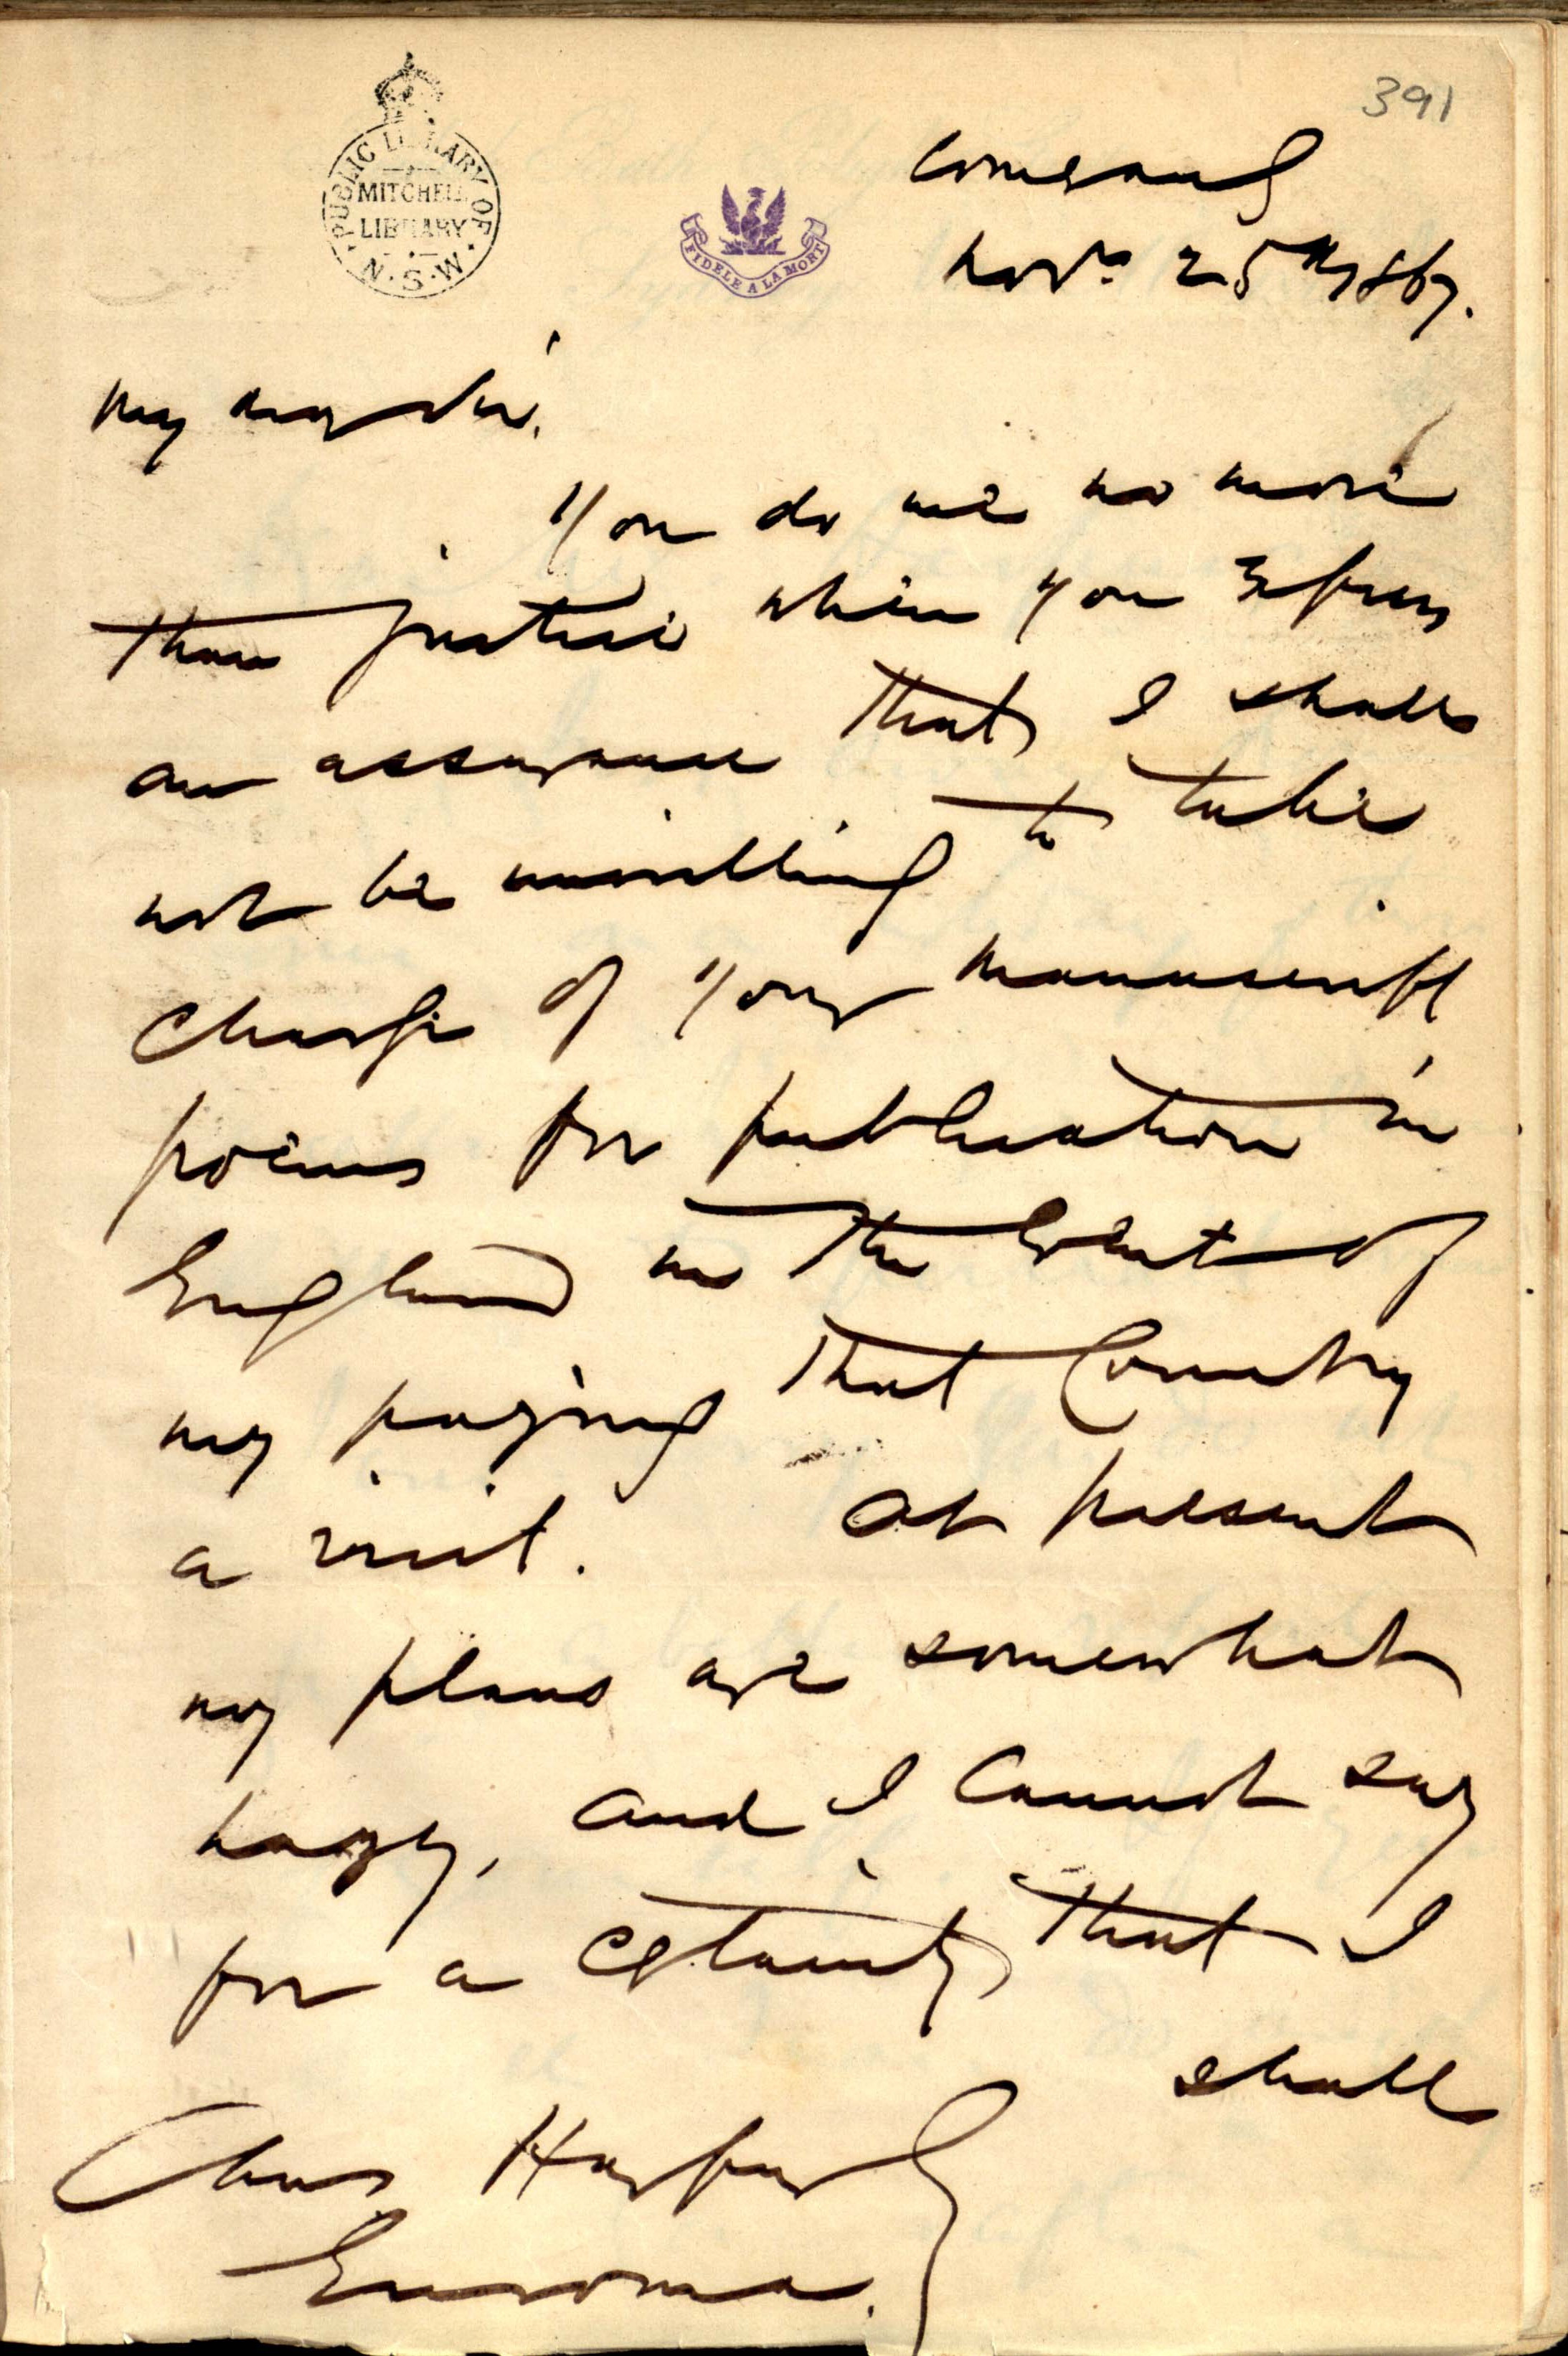 391
PUBLIC LIBRARY OF N.S.W.
MITCHELL
LIBRARY
FIDELE A LA MORT
Comerang
Novr. 25th 1867.
My dear Sir,
You do me no more
than justice when you express
an assurance that I shall
not be unwilling to take
charge of your manuscript
poems for publication in
England in the event of
my paying that Country
a visit. At present
my plans are somewhat
hazy, and I cannot say
for a certainty that I
shall
Chas Harpur
Euroma.